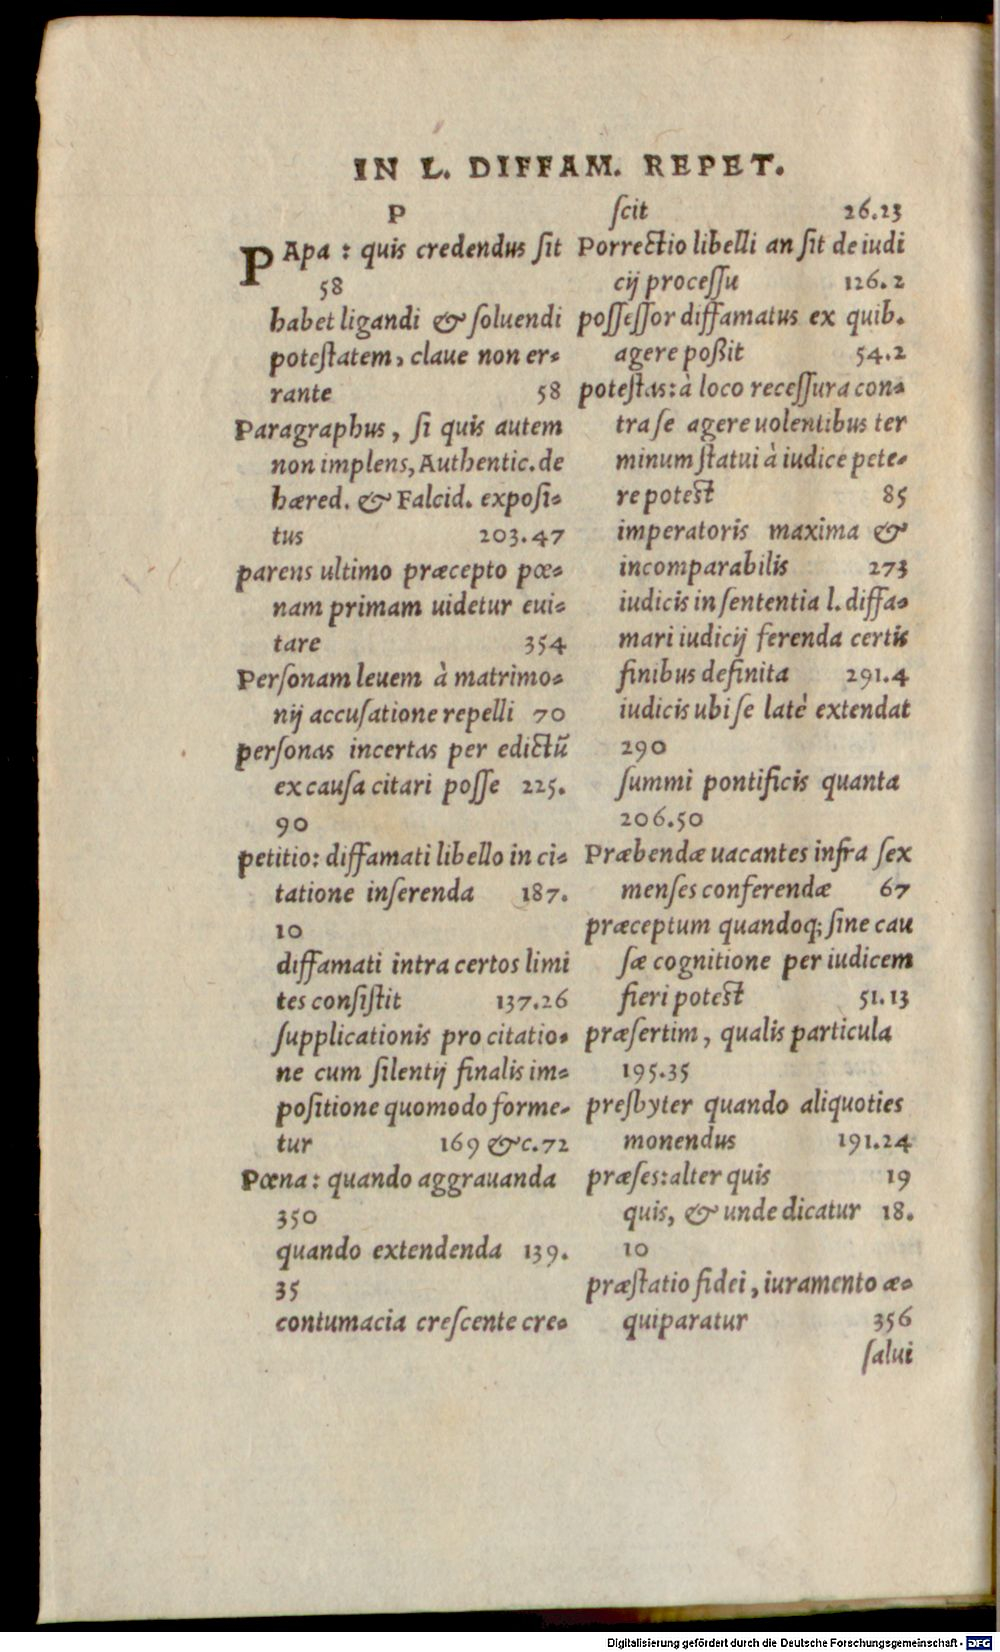 IN L. DIFFAM. REPET.
P
PApa : quis credendus ſit
58
habet ligandi & ſoluendi
poteſtatem, claue non er-
rante 58
Paragraphus, ſi quis autem
non implens, Authentic. de
hæred. & Falcid. expoſi-
tus 203.47
parens ultimo præcepto pœ-
nam primam uidetur eui-
tare 354
Perſonam leuem à matrimo-
nij accuſatione repelli 70
perſonas incertas per edictũ
ex cauſa citari poſſe 225.
90
petitio: diffamati libello in ci-
tatione inſerenda 187.
10
diffamati intra certos limi
tes conſiſtit 137.26
ſupplicationis pro citatio-
ne cum ſilentij finalis im-
poſitione quomodo forme-
tur 169 & c. 72
Pœna : quando aggrauanda
350
quando extendenda 139.
35
contumacia creſcente cre-
ſcit 26.23
Porrectio libelli an ſit de iudi
cij proceſſu 126.2
poſſeſſor diffamatus ex quib.
agere poßit 54.2
poteſtas: à loco receſſura con-
tra ſe agere uolentibus ter
minum ſtatui à iudice pete-
re poteſt 85
imperatoris maxima &
incomparabilis 273
iudicis in ſententia l. diffa-
mari iudicij ferenda certis
finibus definita 291.4
iudicis ubi ſe latè extendat
290
ſummi pontificis quanta
206.50
Præbendæ uacantes infra ſex
menſes conferendæ 67
præceptum quandoq; ſine cau
ſæ cognitione per iudicem
fieri poteſt 51.13
præſertim, qualis particula
195.35
presbyter quando aliquoties
monendus 191.24
præſes: alter quis 19
quis, & unde dicatur 18.
10
præſtatio fidei, iuramento æ-
quiparatur 356
ſalui
Digitalisierung gefördert durch die Deutsche Forschungsgemeinschaft - DFG